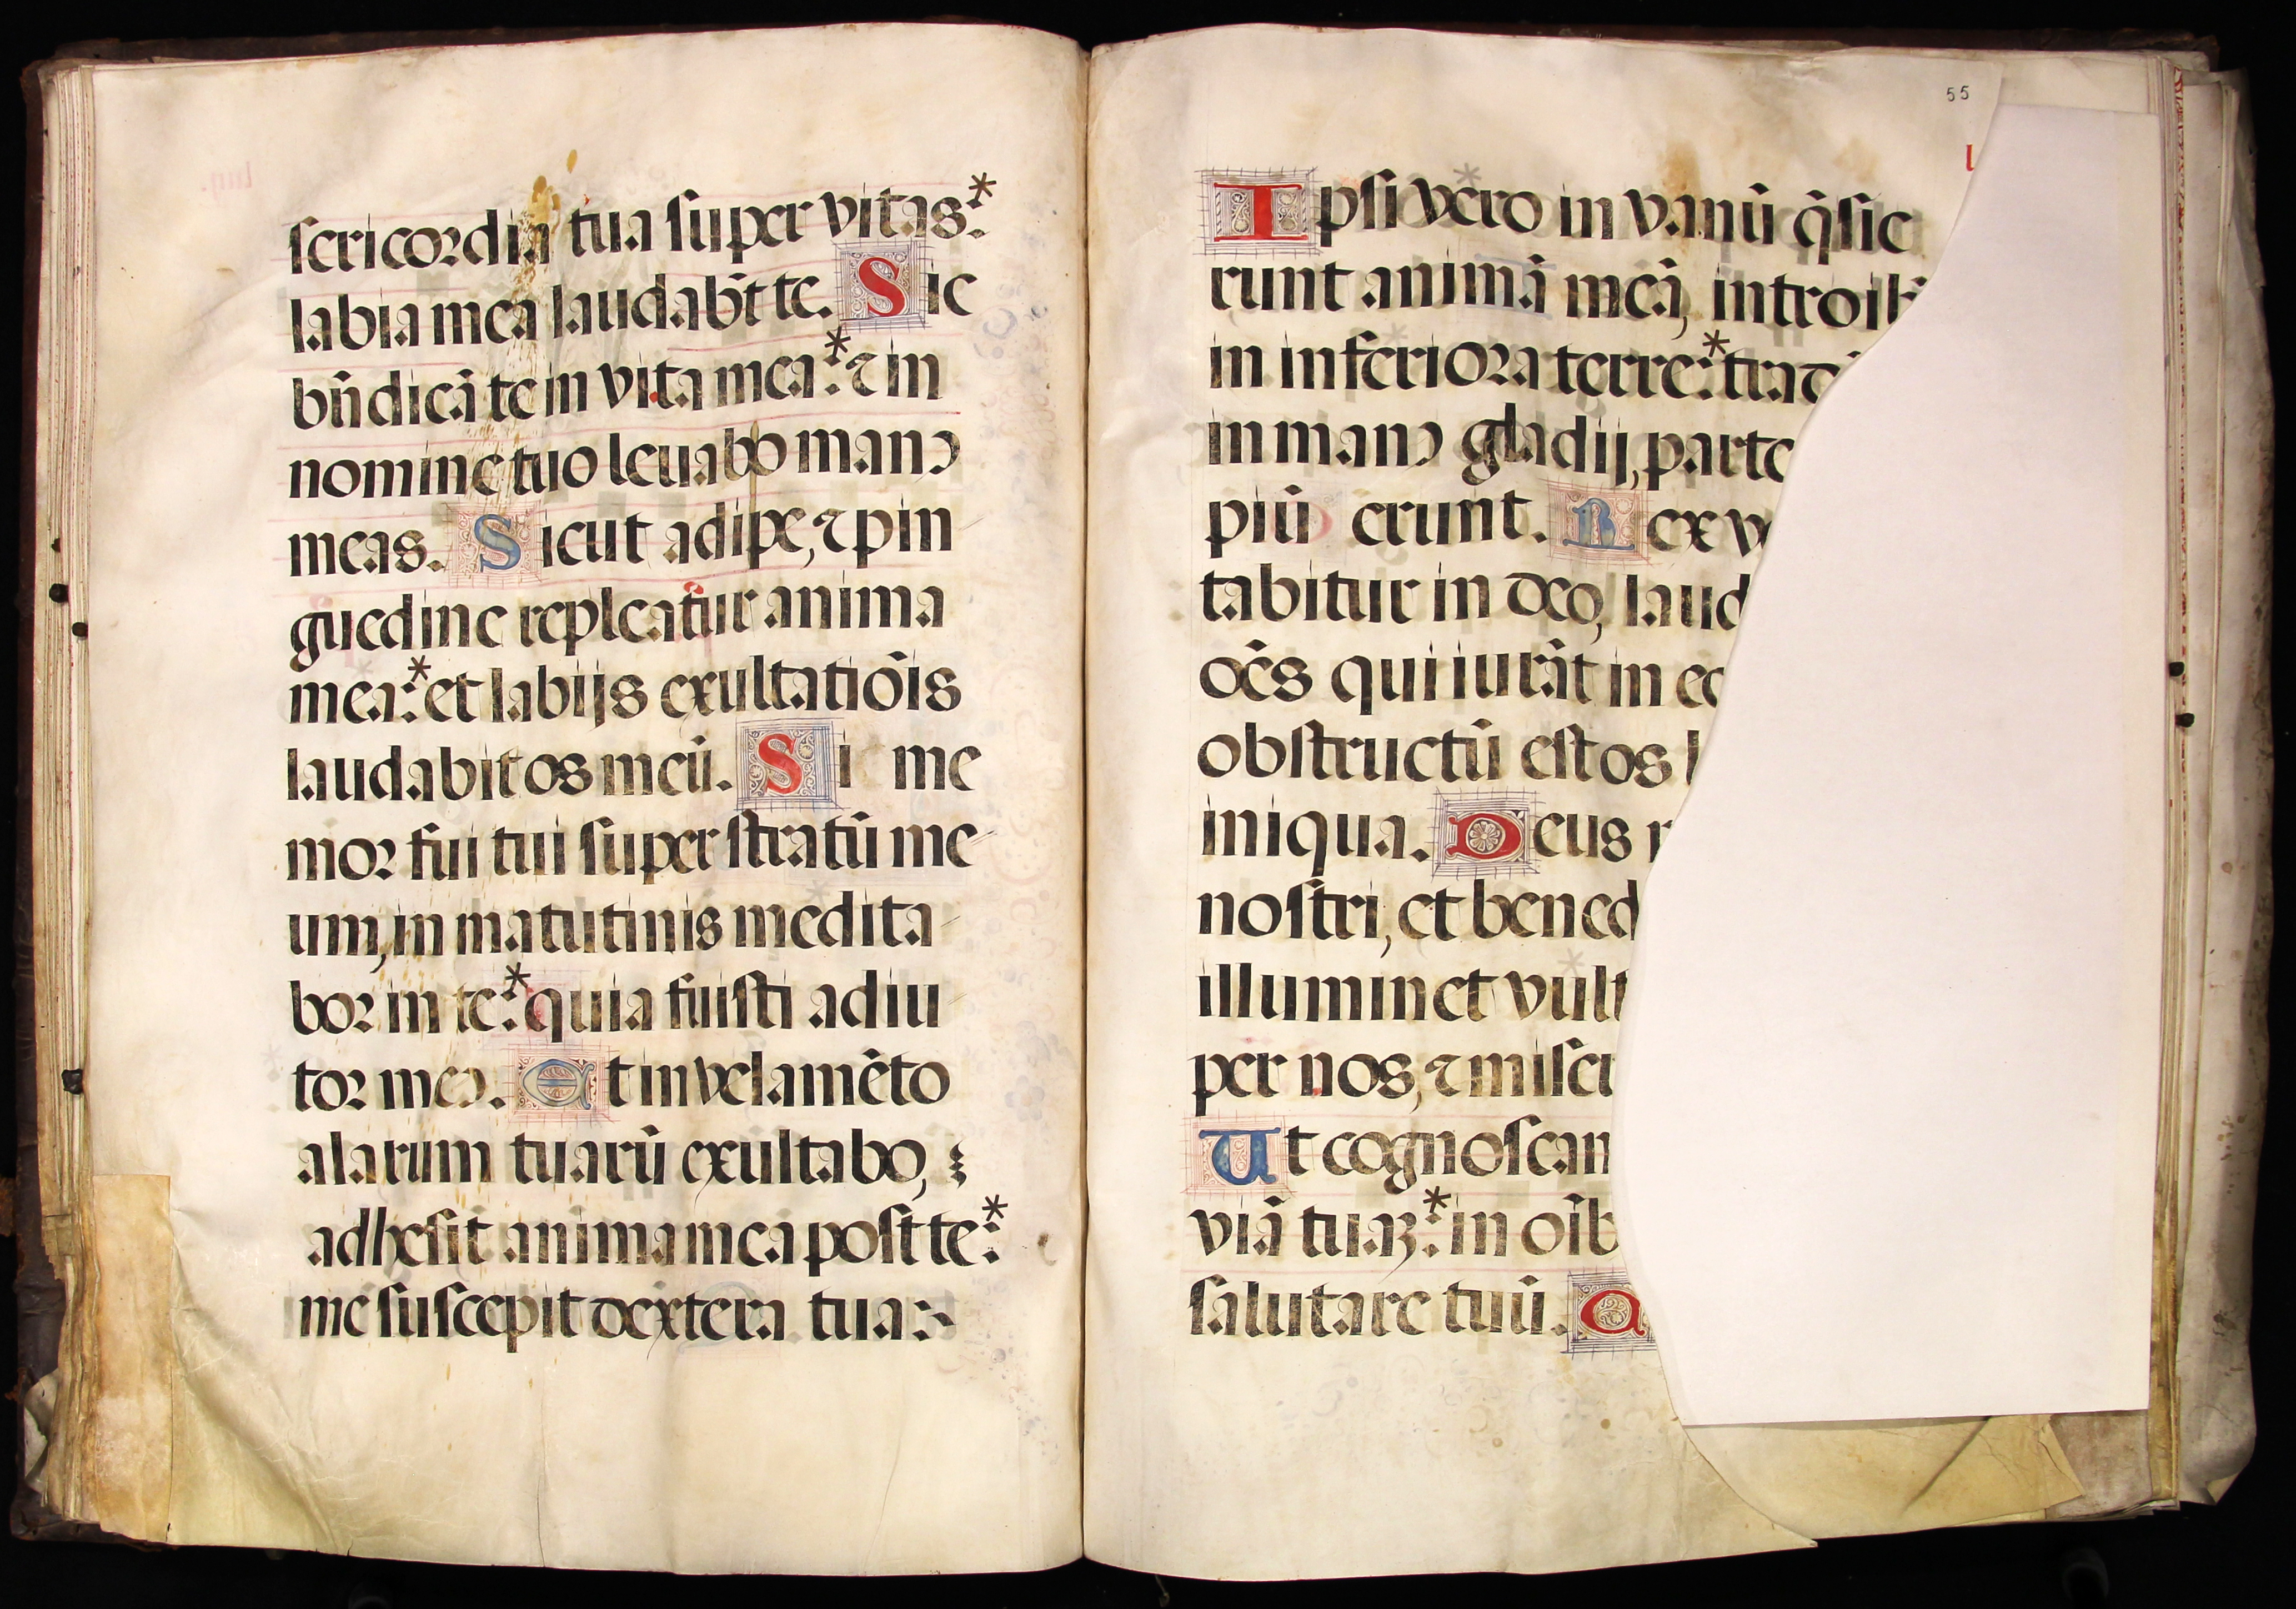 sericordia tua super vitas:*
labia mea laudabūt te. Sic
bn̄dicā te in vita mea:* ⁊ in
nomine tuo leuabo manꝰ
meas. Sicut adipe, ⁊ pin
guedine repleatur anima
mea:* et labijs exultatiōis
laudabit os meū. Si me
moꝛ fui tui super stratū me
um, in matutinis medita
boꝛ in te:* quia fuisti adiu
toꝛ meꝰ. Et in velamēto
alarum tuarū exultabo,
adhesit anima mea post te:*
me suscepit dextera tua:
55
Ipsi vero in vanū q̄sie
runt animā meā, introib
in inferioꝛa terre:* trad
in manꝰ gladij, parte
piū erunt. Rex v
tabitur in deo, laud
oēs qui iurāt in eo
obstructū est os l
iniqua. Deus
nostri, et bened
illuminet vult
per nos, ⁊ miser
Ut cognoscam
viā tuaꝫ:* in oīb
salutare tuū.